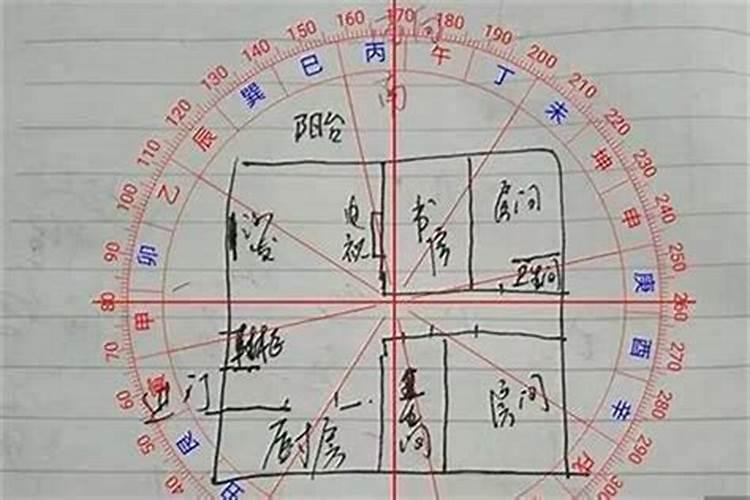 150 160 170 180 190
140 200
130 210
120 220
110 230
100 240
90 250
80 260
70 270
60 280
50 290
40 300
巳 丙 午 丁
巽 未
辰 坤
乙 申
卯 庚
甲 酉
寅 辛
艮 戌
丑
南
阳台
沙发
电视
书房
房间
卫生间
鞋柜
进门
厨房
卫生间
房间